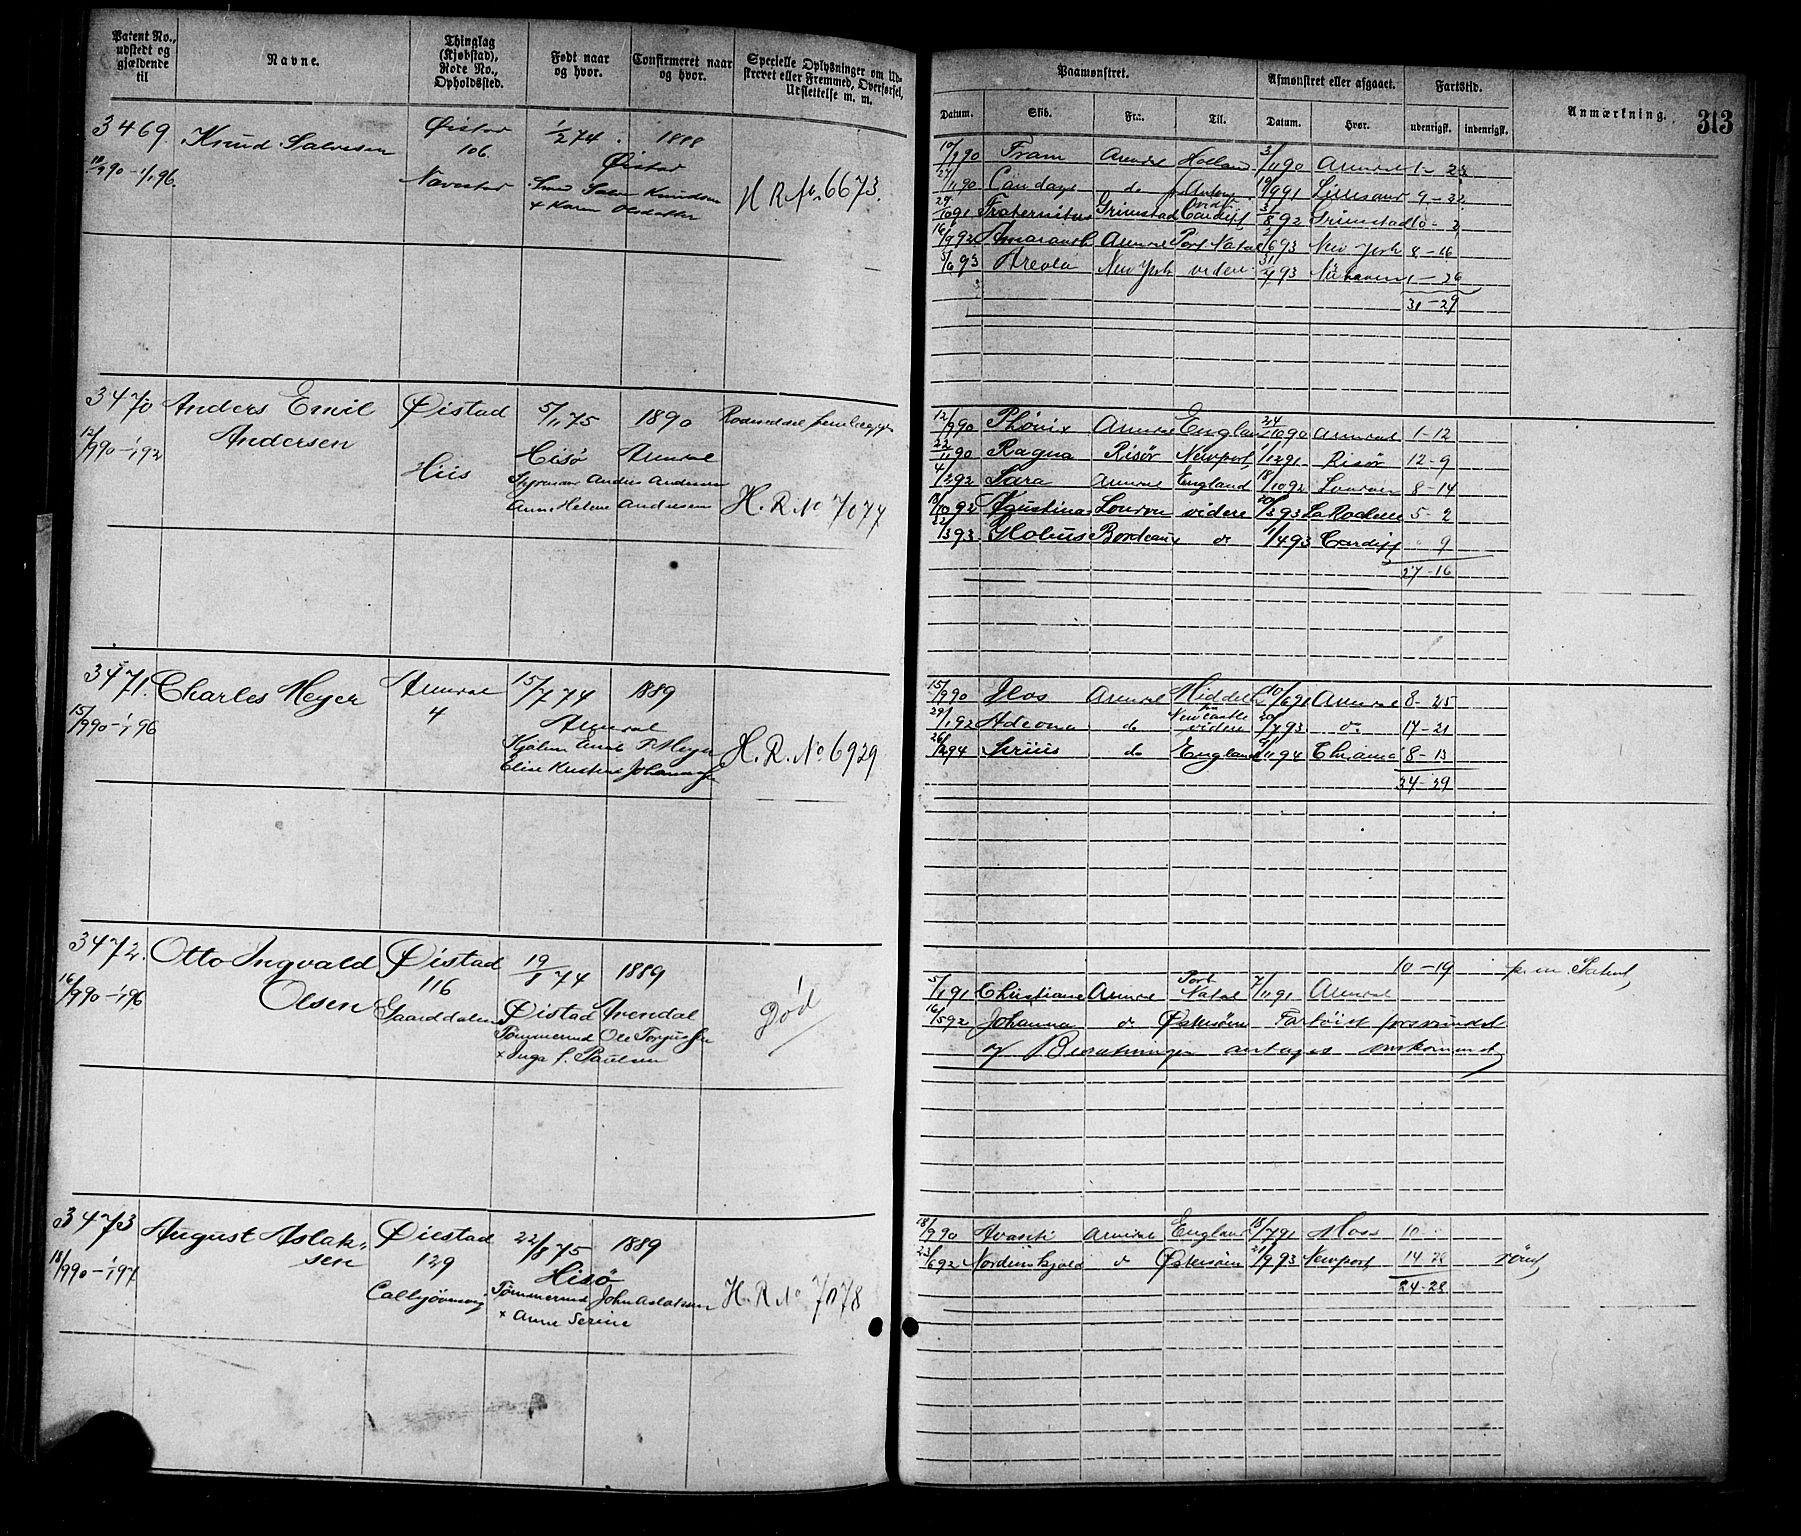 Patent No., udstedt og gjældende til
Navne.
Thinglag (Kjøbstad), Rode No., Opholdssted.
Født naar og hvor.
Confirmeret naar og hvor.
Specielle Oplysninger om Udskrevet eller Fremmed, Overførsel, Udslettelse m. m.
Paamønstret.
Afmønstret eller afgaaet.
Fartstid.
Anmærkning.
313
Datum.
Skib.
Fra:
Til.
Datum.
Hvor.
udenrigsk.
indenrigsk.
3469. Knud Salvesen Øistad 1/2 74. 1888
10/9 90 - 1/1 96. 106. Øistad
Nævestad Salve Knudsen
+ Karen Olsdatter
H R No 6673.
10/9 90 Fram Arendal Holland 3/11 90 Arendal 1 - 23
27/11 90 do 19/9 91 Lillesand 9 - 22
29/10 91 Fraternitas Grimstad Cardiff 3/8 92 Grimstad 10 - 2
16/9 92 Amaranth Arendal Port Natal 2/6 93 New York 8 - 16
5/6 93 New York videre 31/7 93 1 - 26
31 - 29
3470 Anders Emil Øistad 5/11 75 1890
Andersen
12/9 90 - 1/1 92 Hiis Hisø Arendal
Anders Andersen
Anne Helene Andersen
H. R. No 7077
12/9 90 Phønix Arendal England 24/10 90 Arendal 1 - 12
22/11 90 Ragna Risør Newport 1/12 91 Risør 12 - 9
4/2 92 Sara Arendal England 18/10 92 London 8 - 14
18/10 92 London videre 20/3 93 5 - 2
22/3 93 Globus Bordeaux do 1/4 93 Cardiff 9
27 - 16
3471. Charles Meyer Arendal 15/7 74 1889
15/9 90 - 1/1 96 4 Arendal
P. Meyer
Elise Kristine
H. R. No 6929
15/9 90 Arendal 10/6 91 Arendal 8 - 25
29/1 92 Adeona do Newcastle videre 20/7 93 do 17 - 21
26/2 94 Sirius do England 9/11 94 Chrania 8 - 13
34 - 29
3472. Otto Ingvald Øistad 19/8 74 1889
Olsen
16/9 90 - 1/1 96 116 Øistad Arendal
Tømmermd Ole
+ Inga f. Paulsen
Død
10 - 19
5/1 91 Christiane Arendal Port Natal 7/11 91 Arendal
16/5 92 Johanna do Østersøen Fartøiet forsvundet
og Besætningen antages omkommet
3473 August Aslak- Øiestad 22/8 75 1889
sen
18/9 90 - 1/1 97 129 Hisø
Tømmermd John Aslaksen
+ Anne Serine
H. R. No 7078
18/9 90 Arendal England 15/7 91 Moss 10
23/6 92 Nordenskjold do Østersøen 21/9 93 Newport 14 - 28
24 - 28